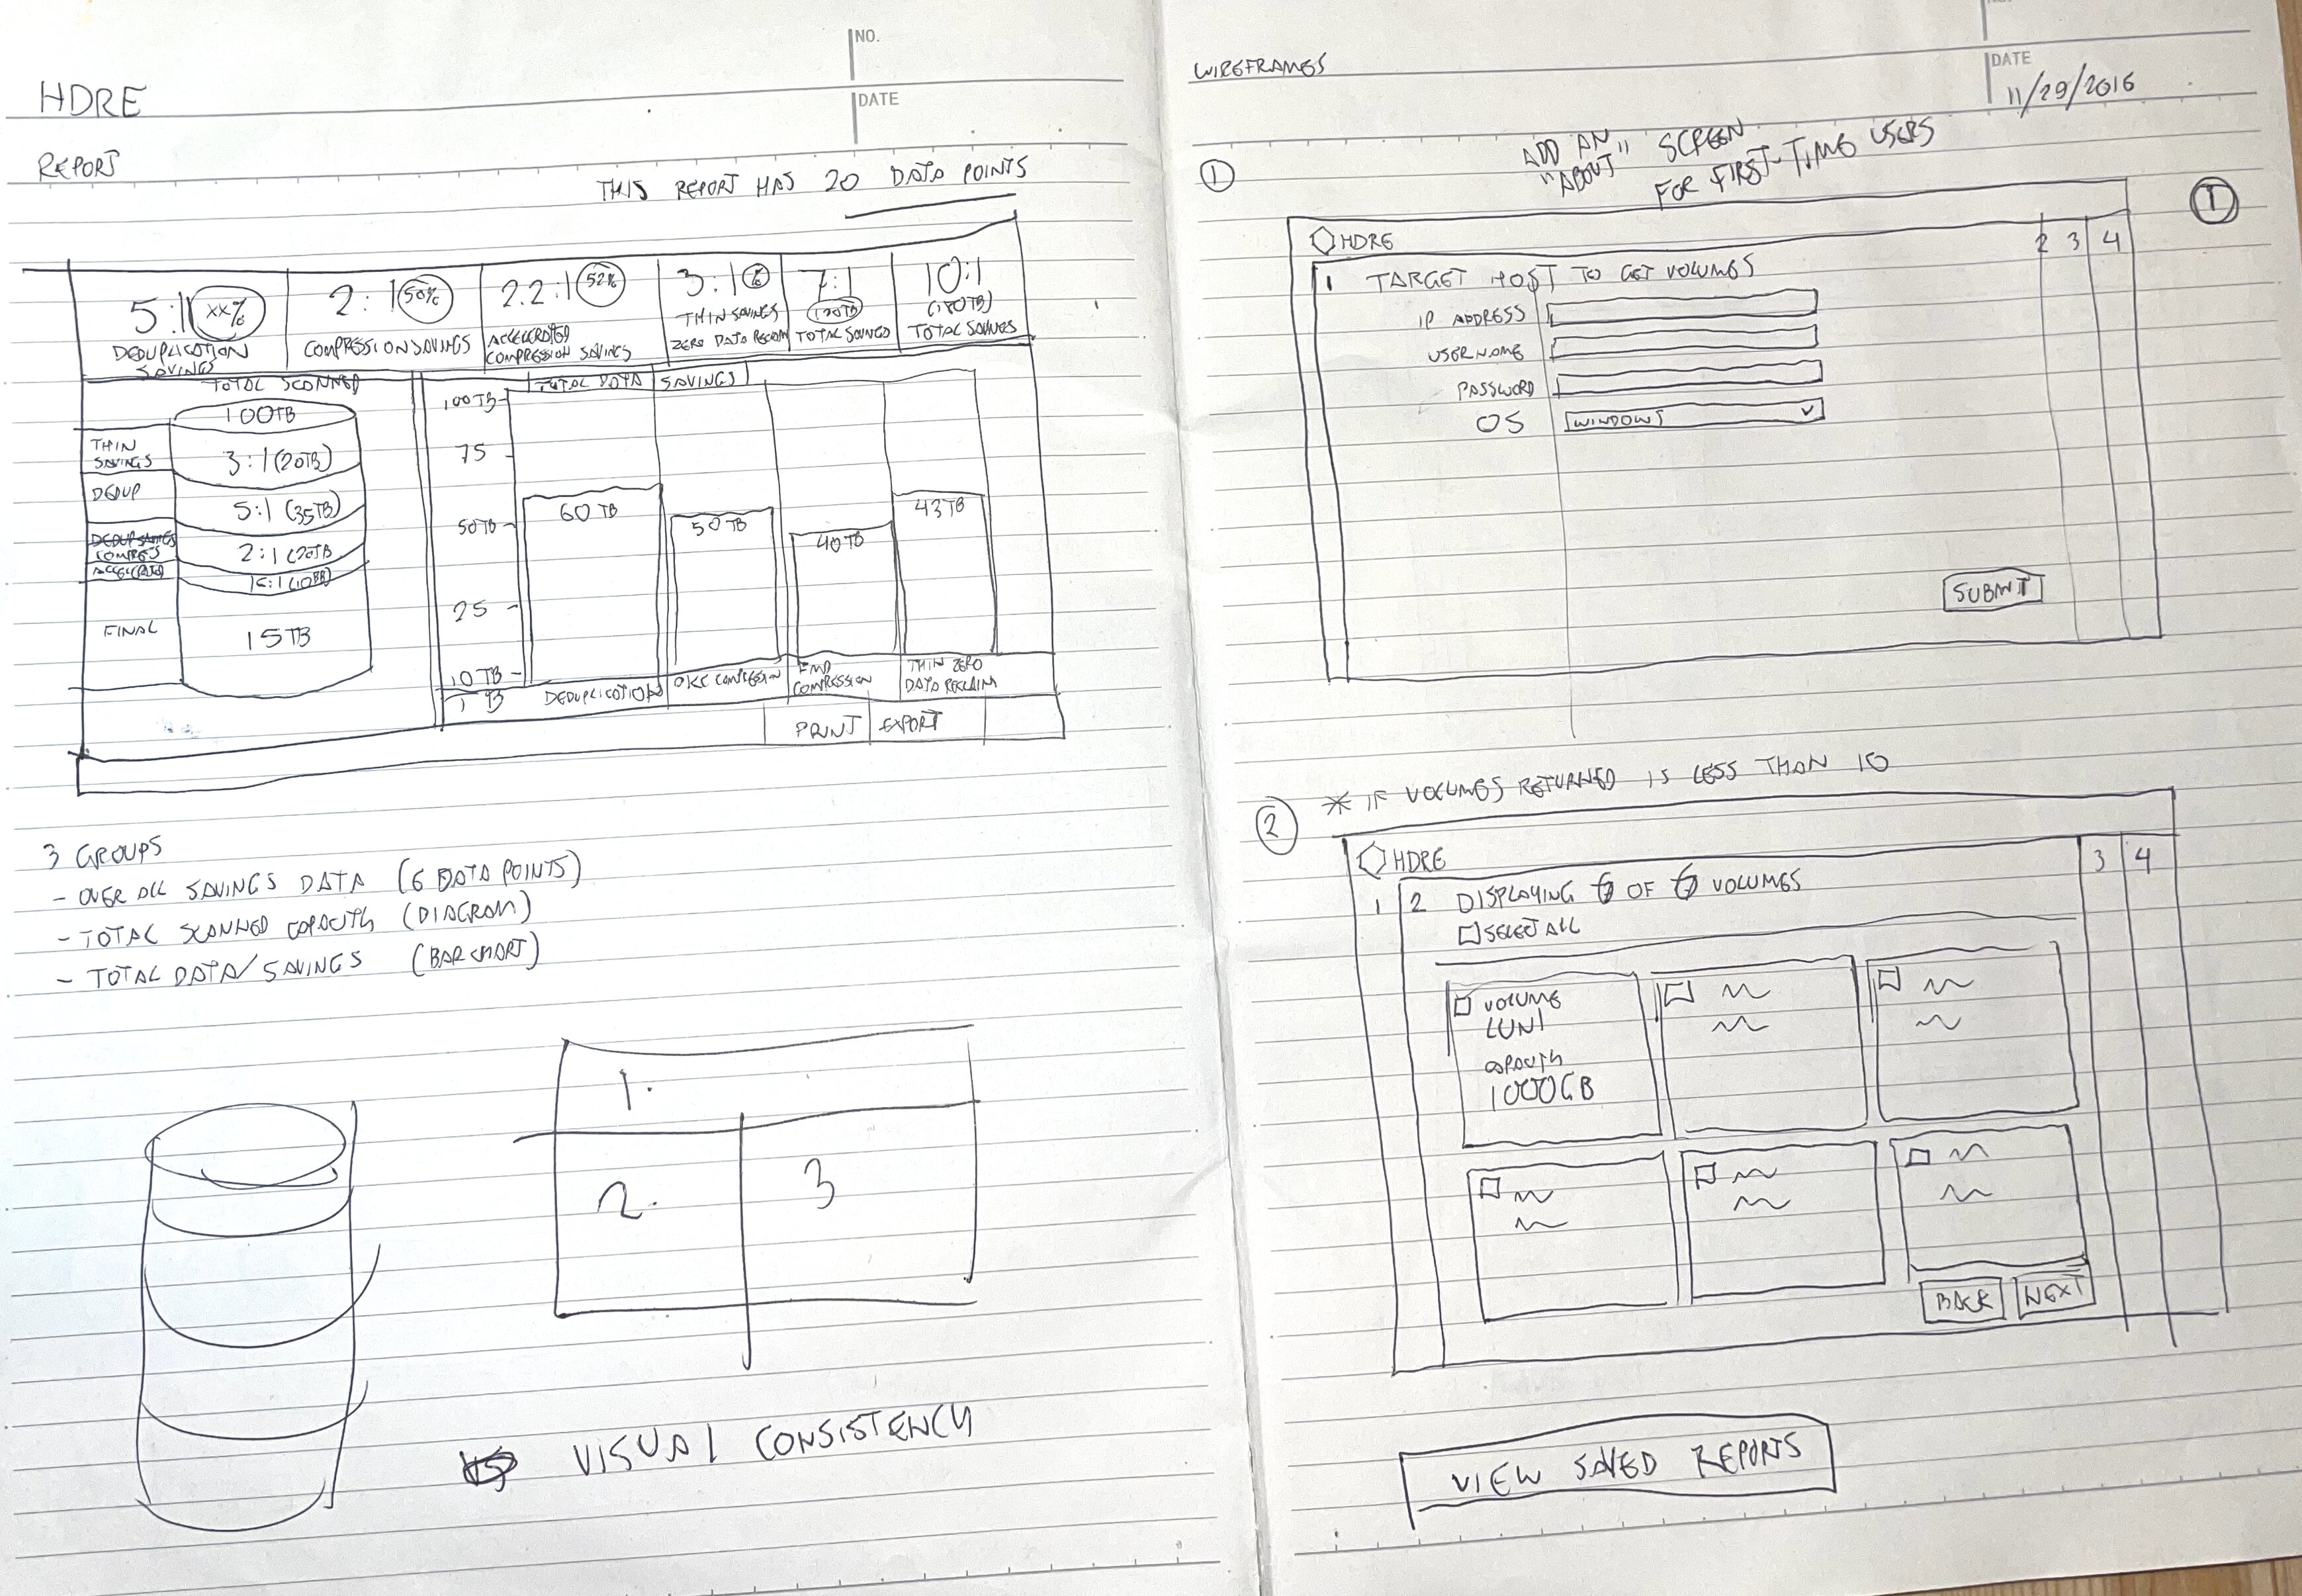 HDRE
NO.
DATE
REPORT
THIS REPORT HAS 20 DATA POINTS
5:1 XX%
DEDUPLICATION
SAVINGS
2:1 50%
COMPRESSION SAVINGS
2.2:1 52%
ACCELERATED
COMPRESSION SAVINGS
3:1
THIN SAVINGS
ZERO DATA RECLAIM
7:1
TOTAL SAVINGS
10:1
TOTAL SAVINGS
TOTAL SCANNED
100TB
THIN
SAVINGS
3:1 (20TB)
DEDUP
5:1 (35TB)
COMPRES
2:1 (20TB
FINAL
15TB
TOTAL DATA SAVINGS
100TB
75
50TB
25
10TB
60TB
50TB
40TB
43TB
DEDUPLICATION
COMPRESSION
COMPRESSION
THIN ZERO
DATA RECLAIM
PRINT
EXPORT
3 GROUPS
- OVER ALL SAVINGS DATA (6 DATA POINTS)
- TOTAL SCANNED CAPACITY (DIAGRAM)
- TOTAL DATA/SAVINGS (BAR CHART)
1.
2.
3
VISUAL CONSISTENCY
WIREFRAMES
DATE
11/29/2016
1
ADD AN
"ABOUT" SCREEN
FOR FIRST-TIME USERS
1
HDRE
2 3 4
1 TARGET HOST TO GET VOLUMES
IP ADDRESS
USERNAME
PASSWORD
OS
WINDOWS
SUBMIT
2
* IF VOLUMES RETURNED IS LESS THAN 10
HDRE
3 4
1
2 DISPLAYING 6 OF 6 VOLUMES
SELECT ALL
VOLUME
LUN1
CAPACITY
1000GB
BACK
NEXT
VIEW SAVED REPORTS